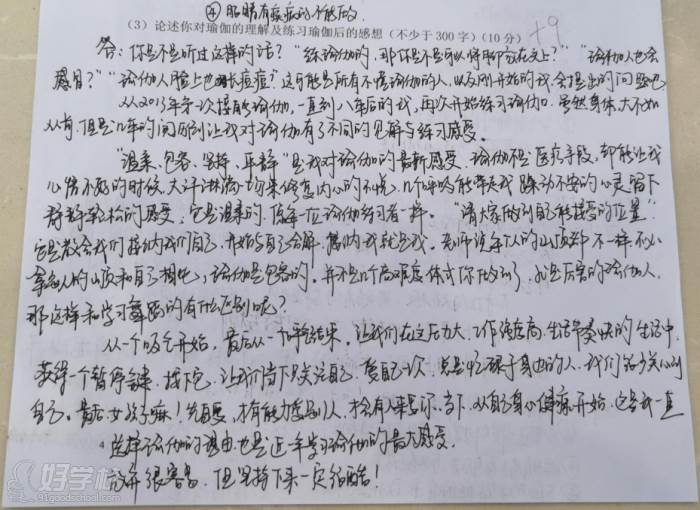 ④ 眼睛有疾病的不能做.
(3) 论述你对瑜伽的理解及练习瑜伽后的感想 (不少于 300 字) (10 分) +9
答: 你是不是听过这样的话? "练瑜伽的, 那你是不是可以将脚放在头上?" "瑜伽人也会
感冒?" "瑜伽人脸上也会长痘痘?" 这可能是所有不懂瑜伽的人, 以及刚开始的我, 会提出的问题吧
从2013年第一次接触瑜伽, 一直到八年后的我, 再次开始练习瑜伽. 虽然身体大不如
从前, 但是几年的间隔到让我对瑜伽有了不同的见解与练习感受.
"温柔、包容、坚持、平静" 是我对瑜伽的最新感受. 瑜伽不是医疗手段, 却能让我
心情不好的时候, 大汗淋漓一场来修复内心的不悦. 几个呼吸能带走我躁动不安的心灵留下
静静轻松的感受, 它是温柔的, 像每一位瑜伽练习者一样. "请大家做到自己能接受的位置"
它是教会我们接纳我们自己, 开始与自己和解, 接纳我就是我. 老师说每个人的山顶都不一样, 不必
拿别人的山顶和自己相比, 瑜伽是包容的. 并不是几个高难度体式你做到了, 就是厉害的瑜伽人,
那这样和学习舞蹈的有什么区别呢?
从一个吸气开始, 最后从一个呼气结束. 让我们在这压力大、工作强度高、生活节奏快的生活中,
获得一个暂停键, 找下它, 让我们当下只关注自己, 爱自己一次. 总是忙碌于身边的人, 我们該多关心到
自己. 最后, 女孩子嘛! 先自爱, 才有能力爱别人, 才会有人来爱你. 当下, 从自己身心健康开始, 这是我一直
选择瑜伽的理由, 也是近一年学习瑜伽的最大感受.
放弃很容易, 但坚持下来一定很酷!